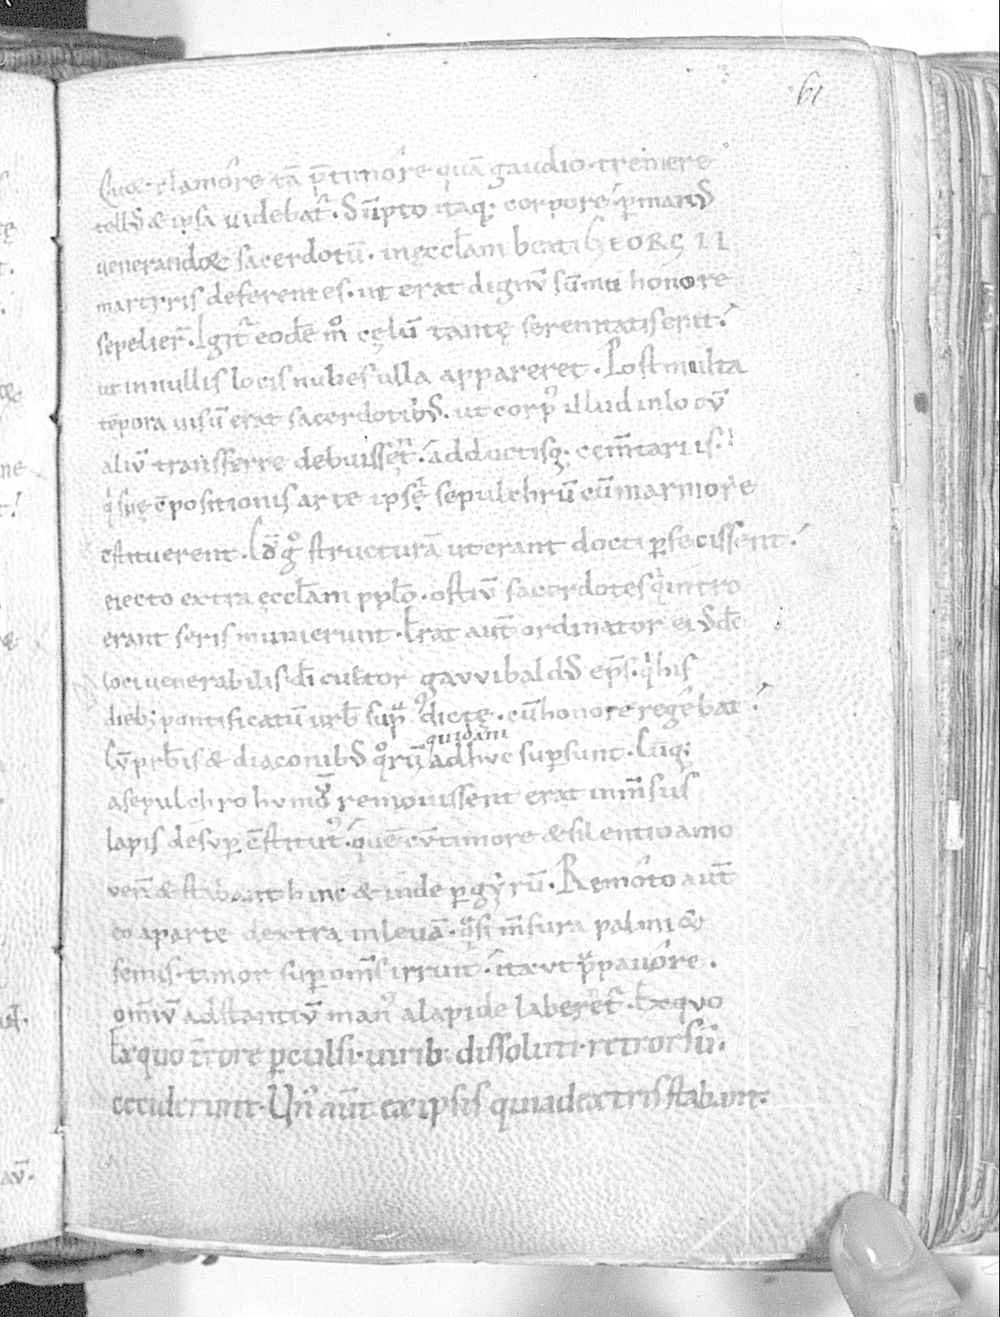 61
Quoꝗ clamore tā p̄ timore quā gaudio tremere
tellꝰ & ipsa videbat᷑. Sūpto itaq; corpore p̱ manꝰ
venerandoꝝ sacerdotū. in ęccl̄am beati GEORGII
martyris deferentes. ut erat dignū sūmo honore
sepelier̄. Igit᷑ eodē m̊ cęlū tantę serenitatis erit.
ut in nullis locis nubes ulla appareret. Post multa
tēpora visū erat sacerdotibꝰ. ut corpꝰ illud in locū
aliū transferre debuissēt. adductisq; cem̄tariis.
q̇ suę cōpositionis arte ipsę sepulchrū cū marmore
estituerent. structurā ut erant docti p̱fecissent.
eiecto extra ęccl̄am ppl̄o. ostiū sacerdotes q̇ intro
erant seris munierunt. Erat aut̄ ordinator eiꝰdē
loci venerabilis dī cultor gavvibaldꝰ ep̄s. q̇ his
dieb; pontificatū urb̄ sup̄dictę. cū honore regebat.
Cū pr̄bis & diaconibꝰ q̊rū quidam adhuc sup̱sunt. Cūq;
a sepulchro humū removissent erat inm̄sus
lapis desup̱ cōstitutꝰ. quē cū timore & silentio amo
ver̄ & stabant hinc & inde p̱ gyrū. Remoto aut̄
eo a parte dextra in levā. q̈si m̄sura palmi &
semis. timor sup̱ om̄s irruit. ita ut p̄ pavore.
om̄iū adstantiū manꝰ a lapide laberēt᷑. Ex quo
Ex quo t̄rore p̱culsi. virib; dissoluti. retrorsū.
ceciderunt. Unꝰ aut̄ ex ipsis qui a dextris stabant.